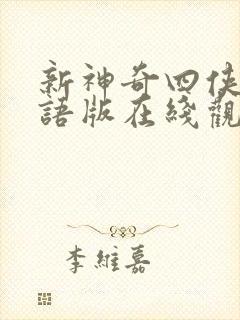 新神奇四俠
語版在綫觀
李維嘉